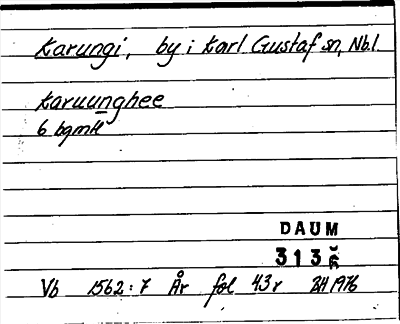 Karungi, by i Karl Gustaf sn, Nb.l.
Karuunghee
6 bgmH
DAUM
313
Vb 1562:7 År fol 43r 1976